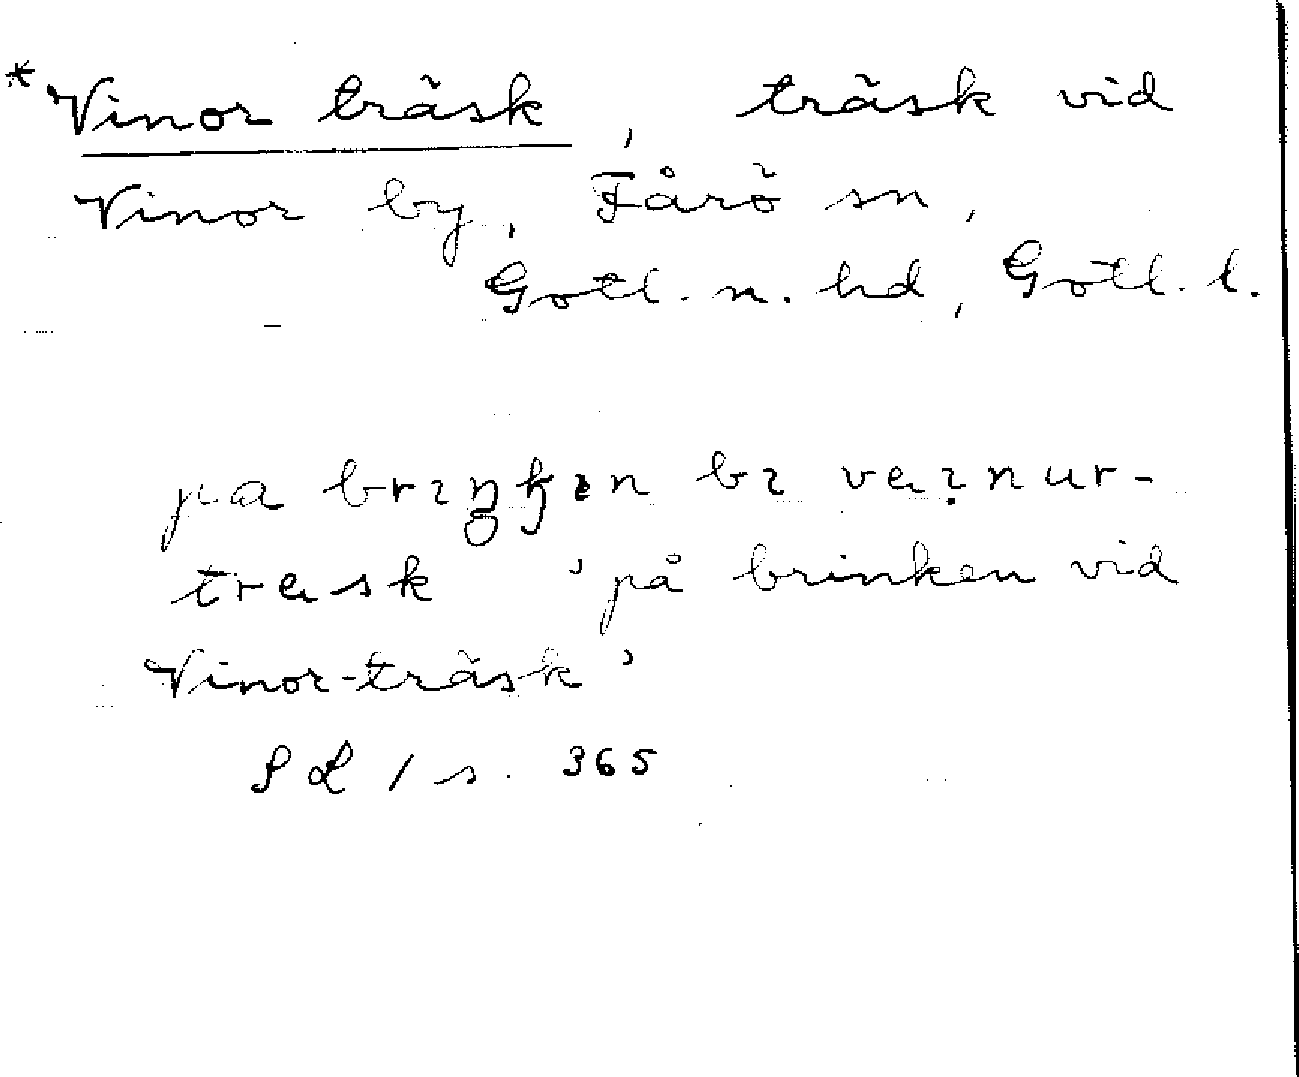 *Vinor träsk, träsk vid
Vinor by, Fårö sn,
Gotl. n. hd, Gotl. l.
pa brıŋkın bı veınur-
trask 'på brinken vid
Vinor-träsk'
PL 1 s. 365